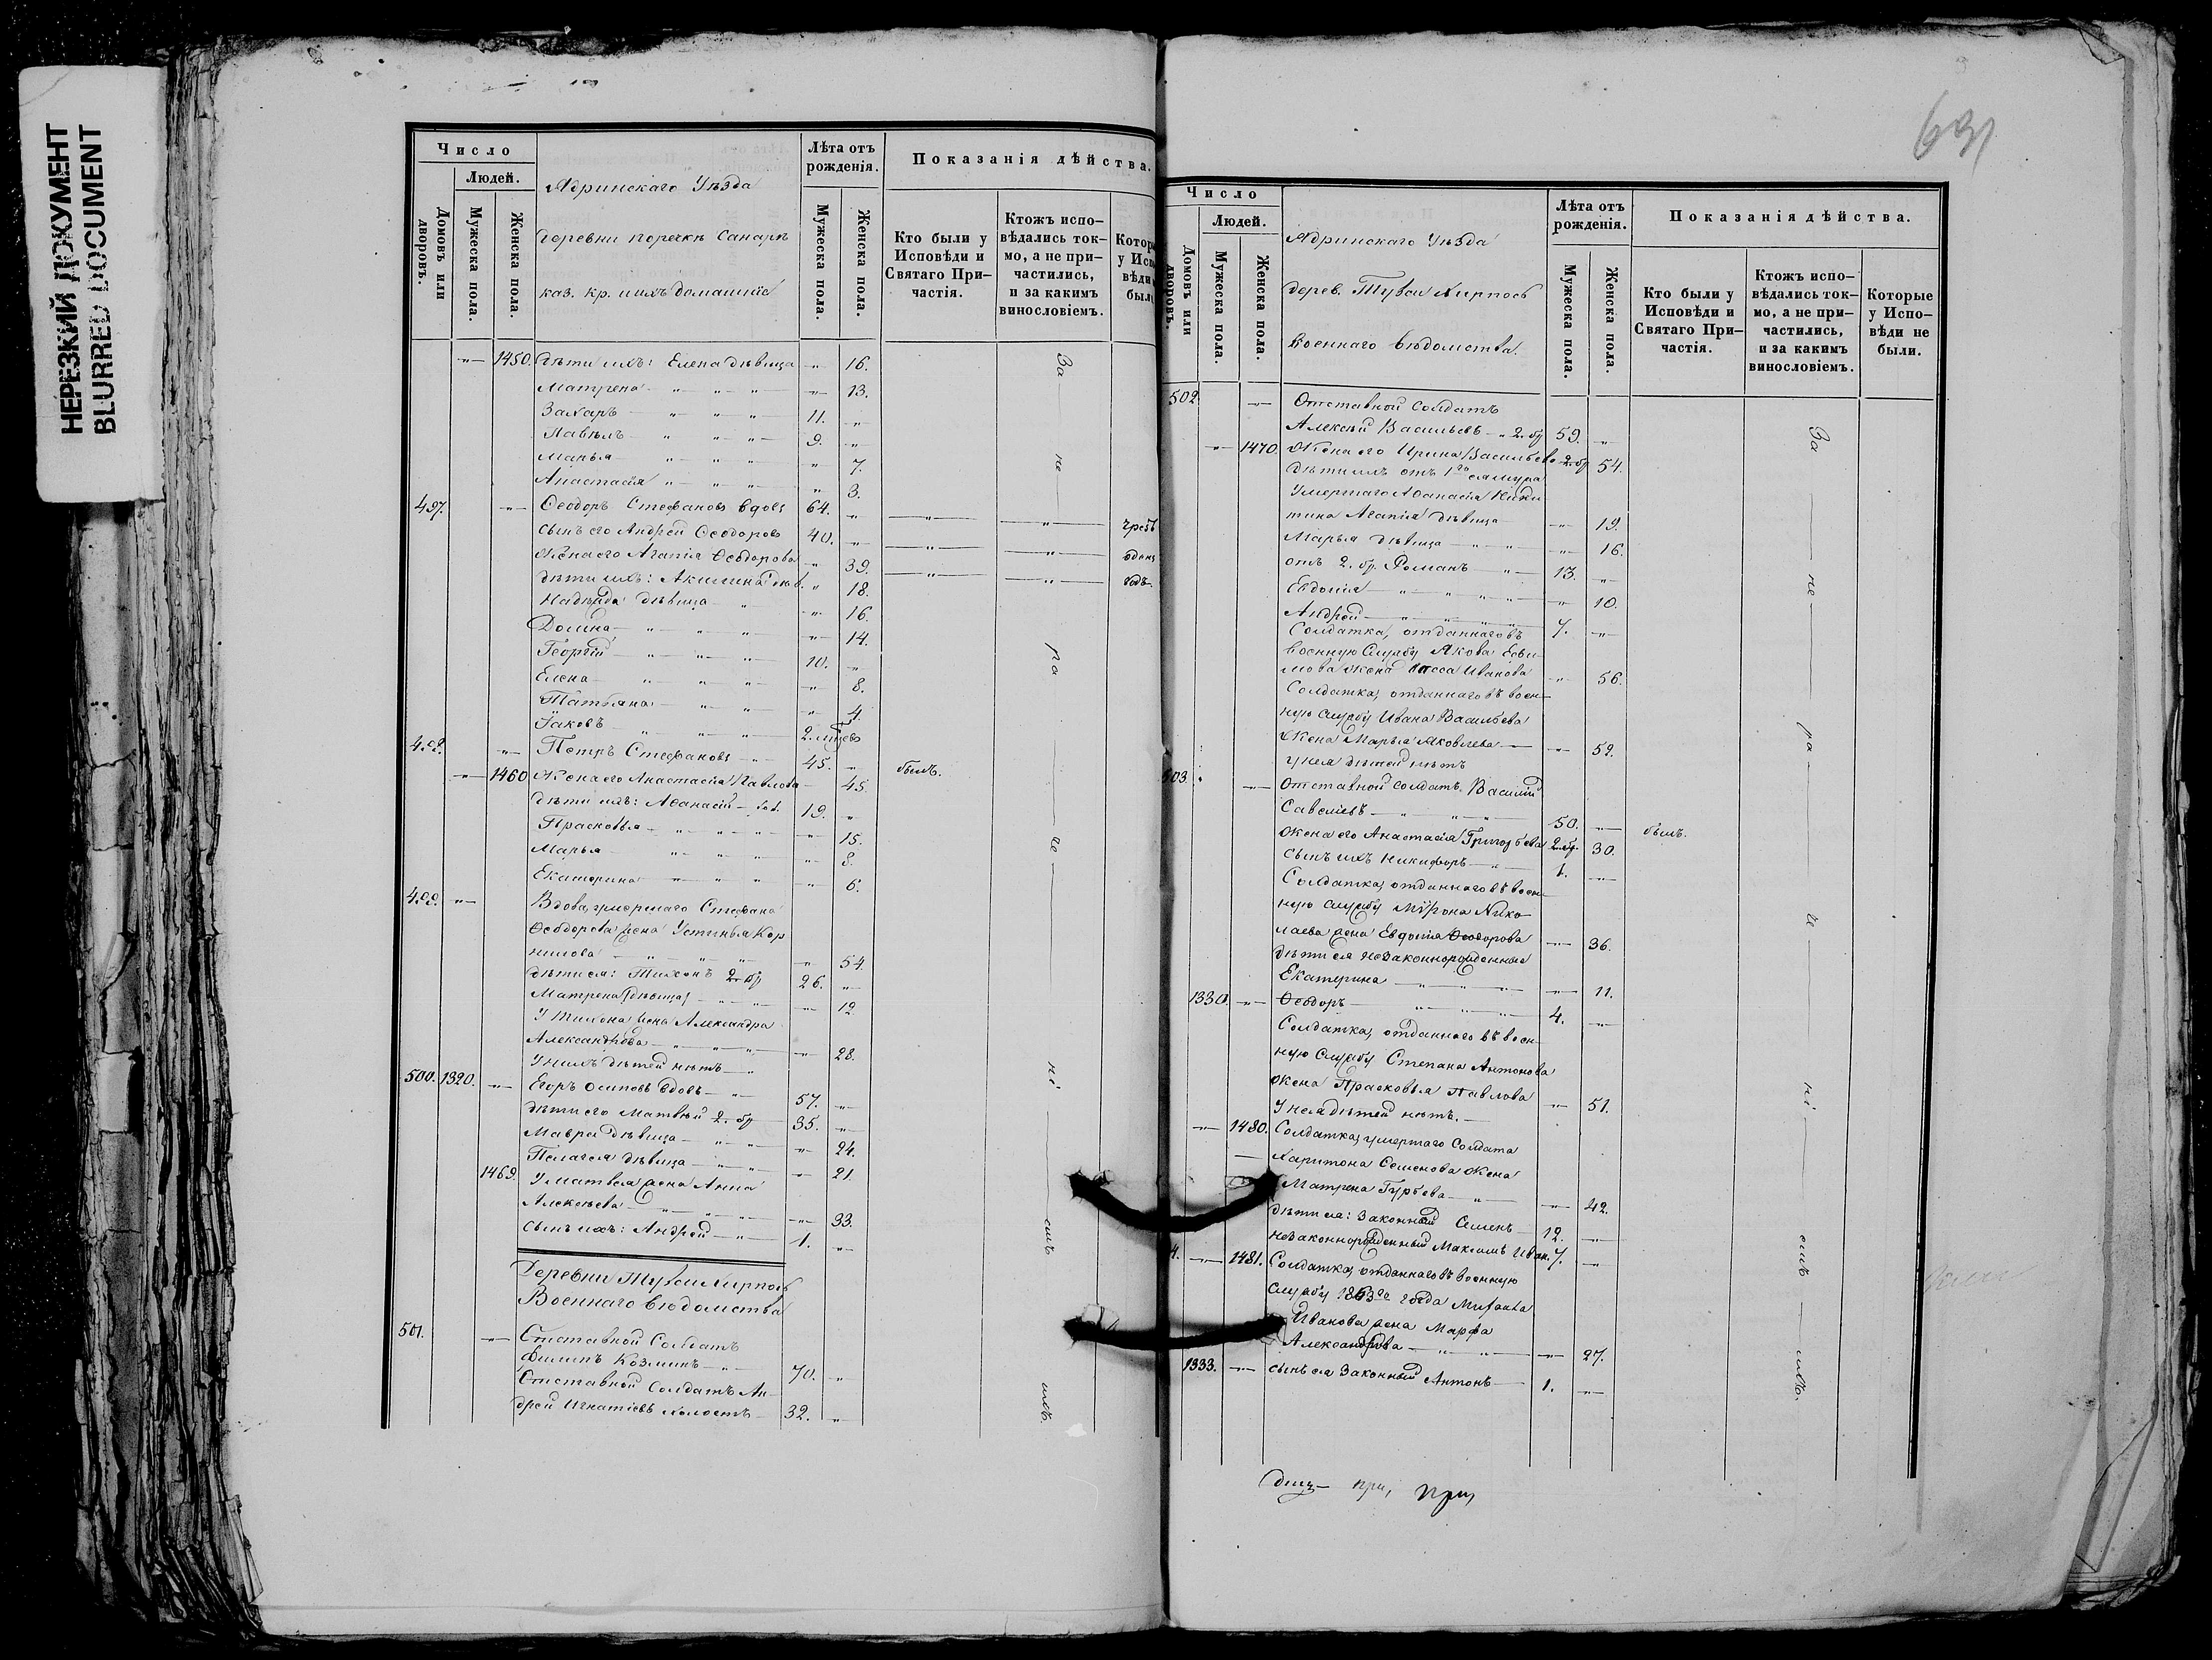 НЕРЕЗКИЙ ДОКУМЕНТ
BLURRED DOCUMENT
Число
Людей.
Домовъ или дворовъ.
Мужеска пола.
Женска пола.
Ядринскаго Уѣзда
деревни поречкѣ Санарѣ
каз. кр. и ихъ домашніе
Лѣта отъ рожденія.
Мужеска пола.
Женска пола.
Показанія дѣйства.
Кто были у Исповѣди и Святаго При-частія.
Ктожъ испо-вѣдались ток-мо, а не при-частились, и за какимъ винословіемъ.
„ 1450. дѣти ихъ: Елена дѣвица „ 16.
Матрена „ „ „ „ 13.
Захаръ „ „ „ 11. „
Павелъ „ „ „ 9. „
Марья „ „ „ „ 7.
Анастасія „ „ „ „ 3.
497. „ Ѳеодоръ Стефановъ вдовъ 64. „ „ „ чрезъ
сынъ его Андрей Ѳеодоровъ 40. „ „ „ одинъ
Жена его Агапія Ѳеодорова „ 39. „ „ годъ.
дѣти ихъ: Акилина дѣв. „ 18.
Надежда дѣвица „ „ 16.
Домна „ „ „ „ 14.
Георгій „ „ „ 10. „
Елена „ „ „ „ 8.
Татьяна „ „ „ 4.
Іаковъ „ „ „ 2. мѣсяцевъ
498. „ Петръ Стефановъ „ 45. „ былъ.
„ 1460 Жена его Анастасія Павлова 45.
дѣти ихъ: Аѳанасій 19. „
Прасковья „ „ „ „ 15.
Марья „ „ „ „ 8.
Екатерина „ „ „ „ 6.
499. „ Вдова, умершаго Стефана
Ѳеодорова жена Устинья Кор
нилова „ „ „ „ 54.
дѣти ея: Тихонъ 2. бр 26. „
Матрена дѣвица „ „ „ 12.
У Тихона жена Александра
Александрова „ „ „ „ 28.
У нихъ дѣтей нѣтъ „
500. 1320. „ Егоръ Осиповъ вдовъ „ 57. „
дѣти его Матвѣй 2. бр 35. „
Мавра дѣвица „ „ „ 24.
Пелагея дѣвица „ „ „ 21.
1469. У Матвея жена Анна
Алексѣева „ „ „ „ 33.
сынъ ихъ: Андрей „ 1. „
Деревни Туваи Хирпось
Военнаго вѣдомства
501. „ Отставной Солдатъ
Филипъ Козминъ „ 70. „
Отставной Солдатъ Ан-
дрей Игнатіевъ холостъ 32. „
За не ра че ні емъ ихъ.
Число
Людей.
Домовъ или дворовъ.
Мужеска пола.
Женска пола.
Ядринскаго Уѣзда
дерев. Туваи Хирпось
Военнаго вѣдомства.
Лѣта отъ рожденія.
Мужеска пола.
Женска пола.
Показанія дѣйства.
Кто были у Исповѣди и Святаго При-частія.
Ктожъ испо-вѣдались ток-мо, а не при-частились, и за какимъ винословіемъ.
Которые у Испо-вѣди не были.
502 „ Отставной Солдатъ
Алексѣй Васильевъ „ 2. бр 59. „
„ 1470. Жена его Ирина Васильева 2. бр. 54.
дѣти ихъ отъ 1го ея мужа
Умершаго Аѳанасія Ники
тина Агапія дѣвица „ 19.
Марья дѣвица „ „ „ 16.
отъ 2. бр. Романъ „ 13. „
Евдокія „ „ „ „ „ 10.
Андрей „ „ „ „ 7. „
Солдатка, отданнаго въ
военную Службу Якова Ефи
мова жена Иванова „ 56.
Солдатка, отданнаго въ воен
ную службу Ивана Васильева
Жена Марья Яковлева „ 52.
у нея дѣтей нѣтъ
503. „ Отставной Солдатъ Василій
Савеліевъ „ „ „ 50. „ былъ.
жена его Анастасія Григорьева 2. бр. 30.
сынъ ихъ Никифоръ „ 1. „
Солдатка, отданнаго въ воен-
ную службу Мирона Нико
лаева жена Евдокія Ѳеодорова „ 36.
дѣти ея незаконнорожденные
Екатерина „ „ „ „ 11.
1330. „ Ѳеодоръ „ „ „ 4. „
Солдатка, отданнаго въ воен-
ную Службу Степана Антонова
жена Прасковья Павлова „ 51.
У нея дѣтей нѣтъ.
„ 1480. Солдатка, умершаго Солдата
Харитона Семенова жена
Матрена Гурьева „ „ 42.
дѣти ея: Законный Семенъ 12. „
незаконнорожденный Максимъ Иван. 7. „
4. „ 1481. Солдатка, отданнаго въ военную
службу 1863го года
Иванова жена Марфа
Александрова „ „ „ 27.
1333. „ сынъ ея Законный Антонъ 1. „
За не ра че ні емъ ихъ.